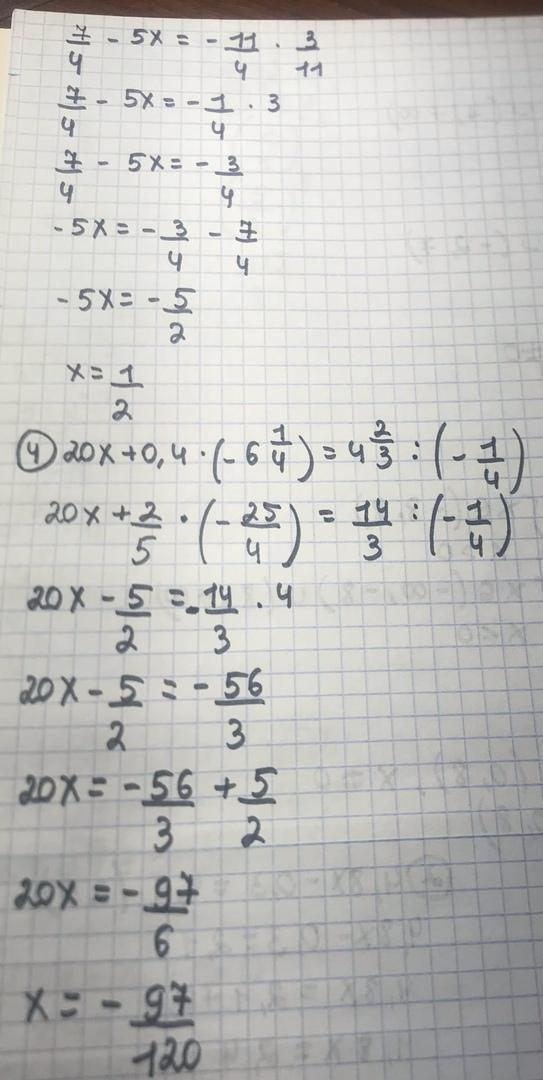 7/4 - 5x = - 11/4 · 3/11
7/4 - 5x = - 1/4 · 3
7/4 - 5x = - 3/4
- 5x = - 3/4 - 7/4
- 5x = - 5/2
x = 1/2
④ 20x + 0,4 · (- 6 1/4) = 4 2/3 : (- 1/4)
20x + 2/5 · (- 25/4) = 14/3 : (- 1/4)
20x - 5/2 = - 14/3 · 4
20x - 5/2 = - 56/3
20x = - 56/3 + 5/2
20x = - 97/6
x = - 97/120